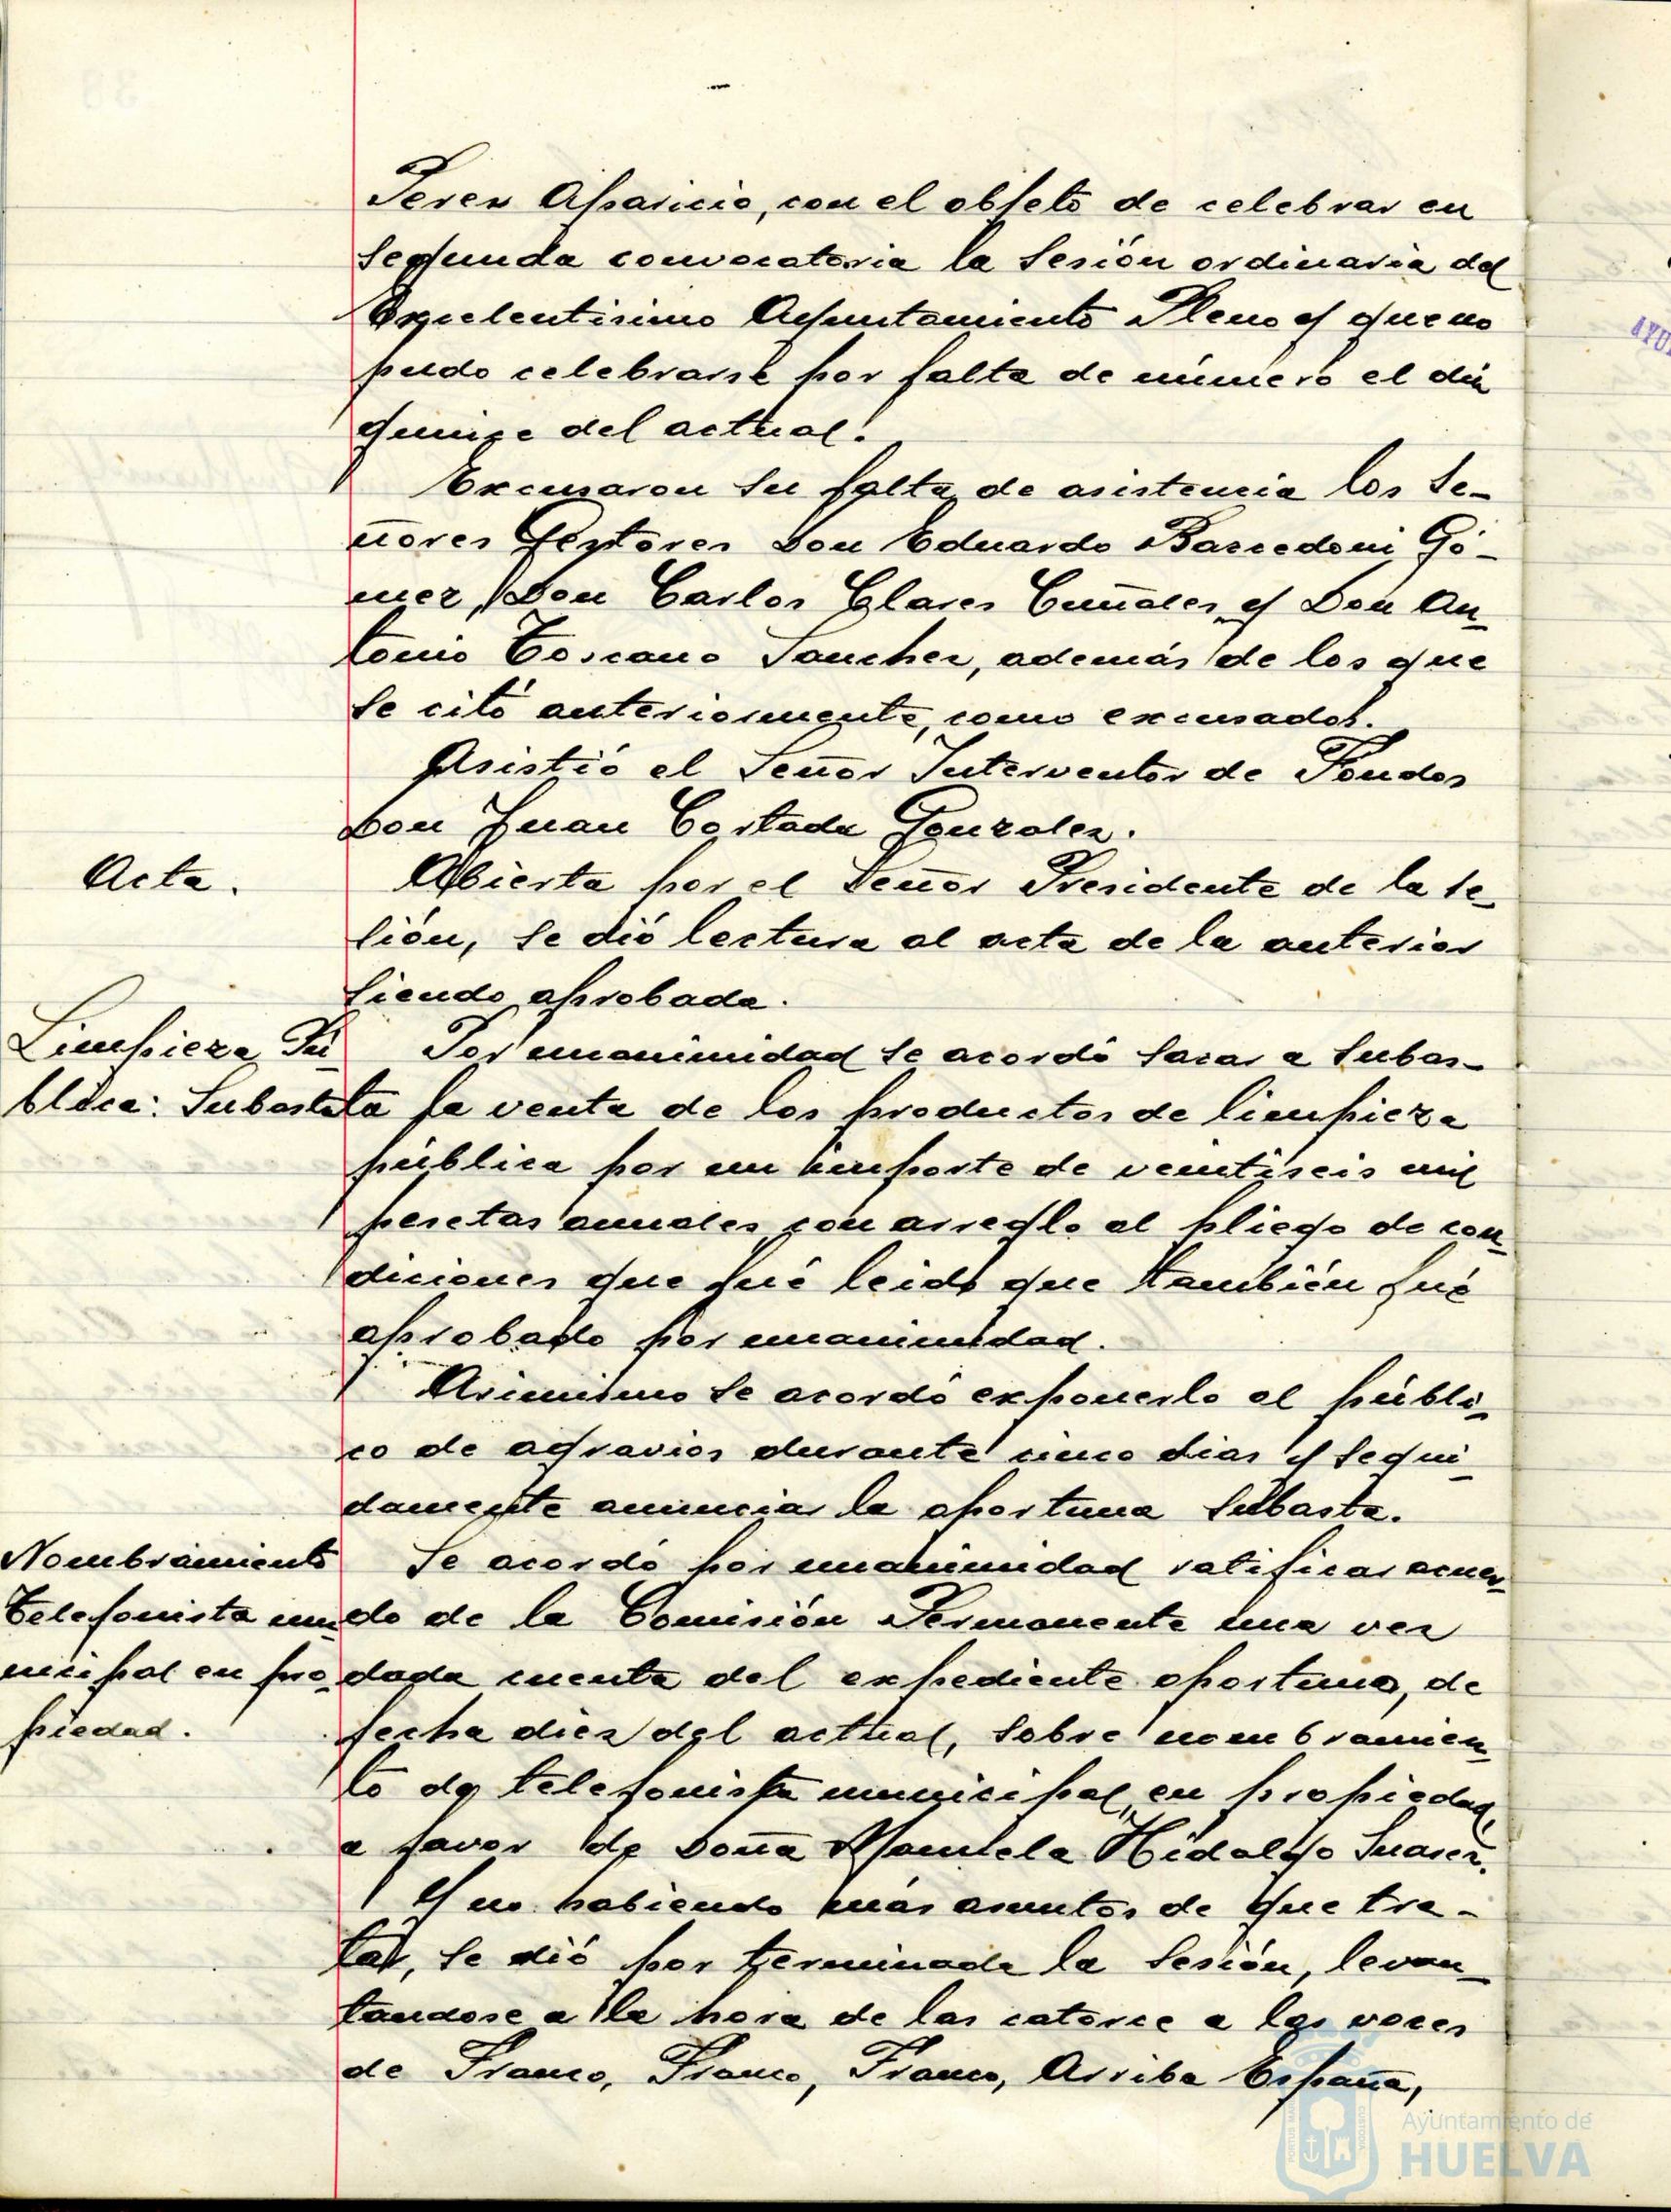 Perez Aparicio, con el objeto de celebrar en
segunda convocatoria la Sesión ordinaria del
Excelentisimo Ayuntamiento Pleno y que no
pudo celebrarse por falta de número el dia
quince del actual.
Excusaron su falta de asistencia los Se-
ñores Gestores Don Eduardo Gó-
mez, Don Carlos Clares Cuñales y Don An-
tonio Toscano Sanchez, además de los que
se citó anteriormente, como excusados.
Asistió el Señor Interventor de Fondos
Don Juan Cortada Gonzalez.
Acta.
Abierta por el Señor Presidente de la se-
sión, se dió lectura al acta de la anterior
siendo aprobada.
Limpieza Pú-
blica: Subasta
Por unanimidad se acordó sacar a subas-
ta la venta de los productos de limpieza
pública por un importe de veintiseis mil
pesetas anuales con arreglo al pliego de con-
diciones que fué leido que también fué
aprobado por unanimidad.
Asimismo se acordó exponerlo al públi-
co de agravios durante cinco dias y segui-
damente anunciar la oportuna Subasta.
Nombramiento
telefonista mu-
nicipal en pro-
piedad.
Se acordó por unanimidad ratificar acuer-
do de la Comisión Permanente una vez
dada cuenta del expediente oportuno, de
fecha diez del actual, sobre nombramien-
to de telefonista municipal, en propiedad
a favor de Doña Manuela Hidalgo Suarez.
Y no habiendo más asuntos de que tra-
tar, se dió por terminada la Sesión, levan-
tandose a la hora de las catorce a las voces
de Franco, Franco, Franco, Arriba España,
Ayuntamiento de
HUELVA